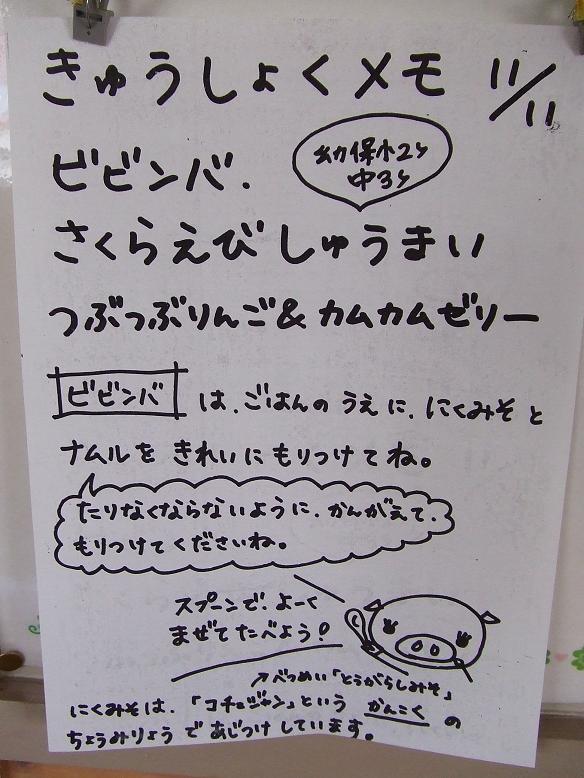 きゅうしょくメモ 11/11
ビビンバ.
幼保小2〻
中3〻
さくらえびしゅうまい
つぶつぶりんご&カムカムゼリー
ビビンバ は、ごはんのうえに、にくみそと
ナムルをきれいにもりつけてね。
たりなくならないように、かんがえて、
もりつけてくださいね。
スプーンで、よーく
まぜてたべよう!
↗べつめい「とうがらしみそ」
にくみそは、「コチュジャン」という かんこく の
ちょうみりょうであじつけしています。